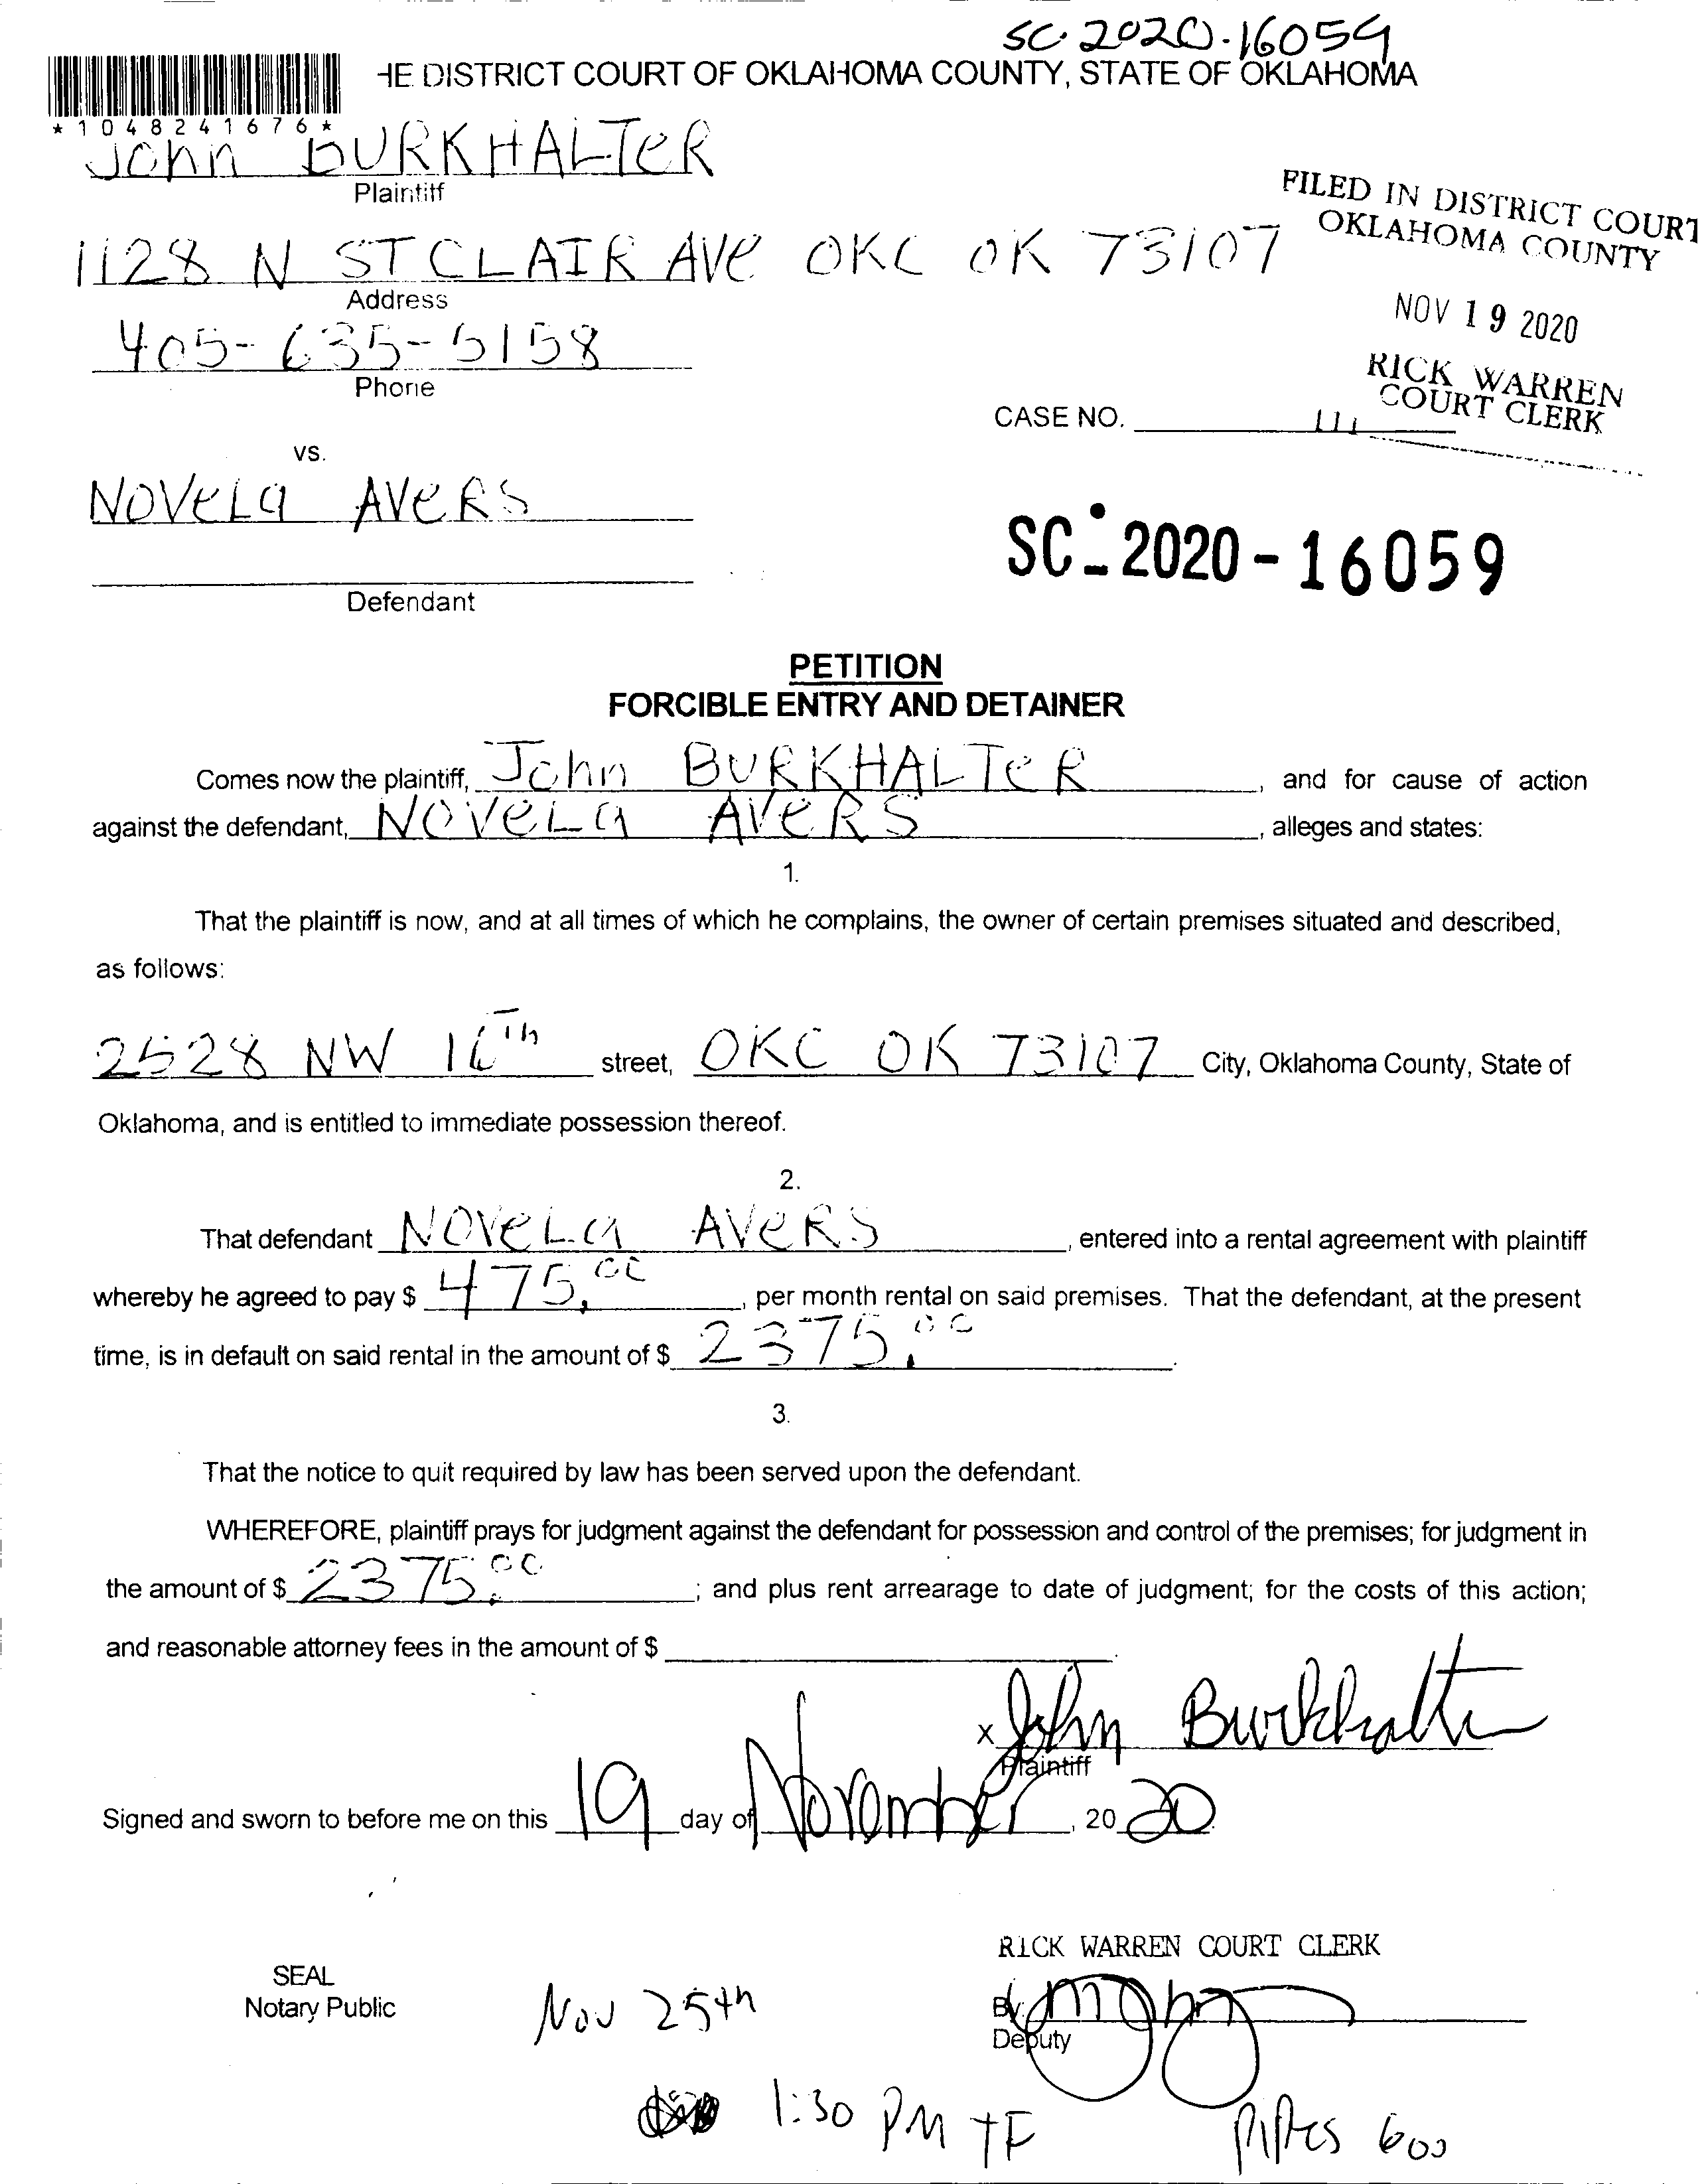 SC-2020-16059
HE DISTRICT COURT OF OKLAHOMA COUNTY, STATE OF OKLAHOMA
*1048241676*
John BURKHALTeR
Plaintiff
FILED IN DISTRICT COURT
OKLAHOMA COUNTY
1128 N ST CLAIR AVe OKC OK 73107
Address
NOV 19 2020
405-635-5158
Phone
RICK WARREN
COURT CLERK
CASE NO.
vs.
NOVeLa AVeRS
SC-2020-16059
Defendant
PETITION
FORCIBLE ENTRY AND DETAINER
Comes now the plaintiff, John BURKHALTeR, and for cause of action
against the defendant, NOVeLa AVeRS, alleges and states:
1.
That the plaintiff is now, and at all times of which he complains, the owner of certain premises situated and described,
as follows:
2528 NW 16Th street, OKC OK 73107 City, Oklahoma County, State of
Oklahoma, and is entitled to immediate possession thereof.
2.
That defendant NOVeLa AVeRS, entered into a rental agreement with plaintiff
whereby he agreed to pay $ 475.00, per month rental on said premises. That the defendant, at the present
time, is in default on said rental in the amount of $ 2375.00.
3.
That the notice to quit required by law has been served upon the defendant.
WHEREFORE, plaintiff prays for judgment against the defendant for possession and control of the premises; for judgment in
the amount of $ 2375.00; and plus rent arrearage to date of judgment; for the costs of this action;
and reasonable attorney fees in the amount of $.
x John Burkhalter
Plaintiff
Signed and sworn to before me on this 19 day of November, 20 20.
RICK WARREN COURT CLERK
SEAL
Notary Public
Nov 25th
By:
Deputy
1:30 PM TF
600